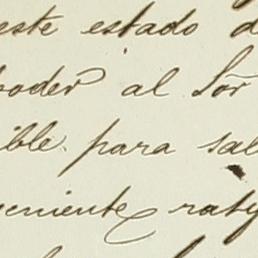 este estado d
poder al Sōr
ible para sal
veniente raty